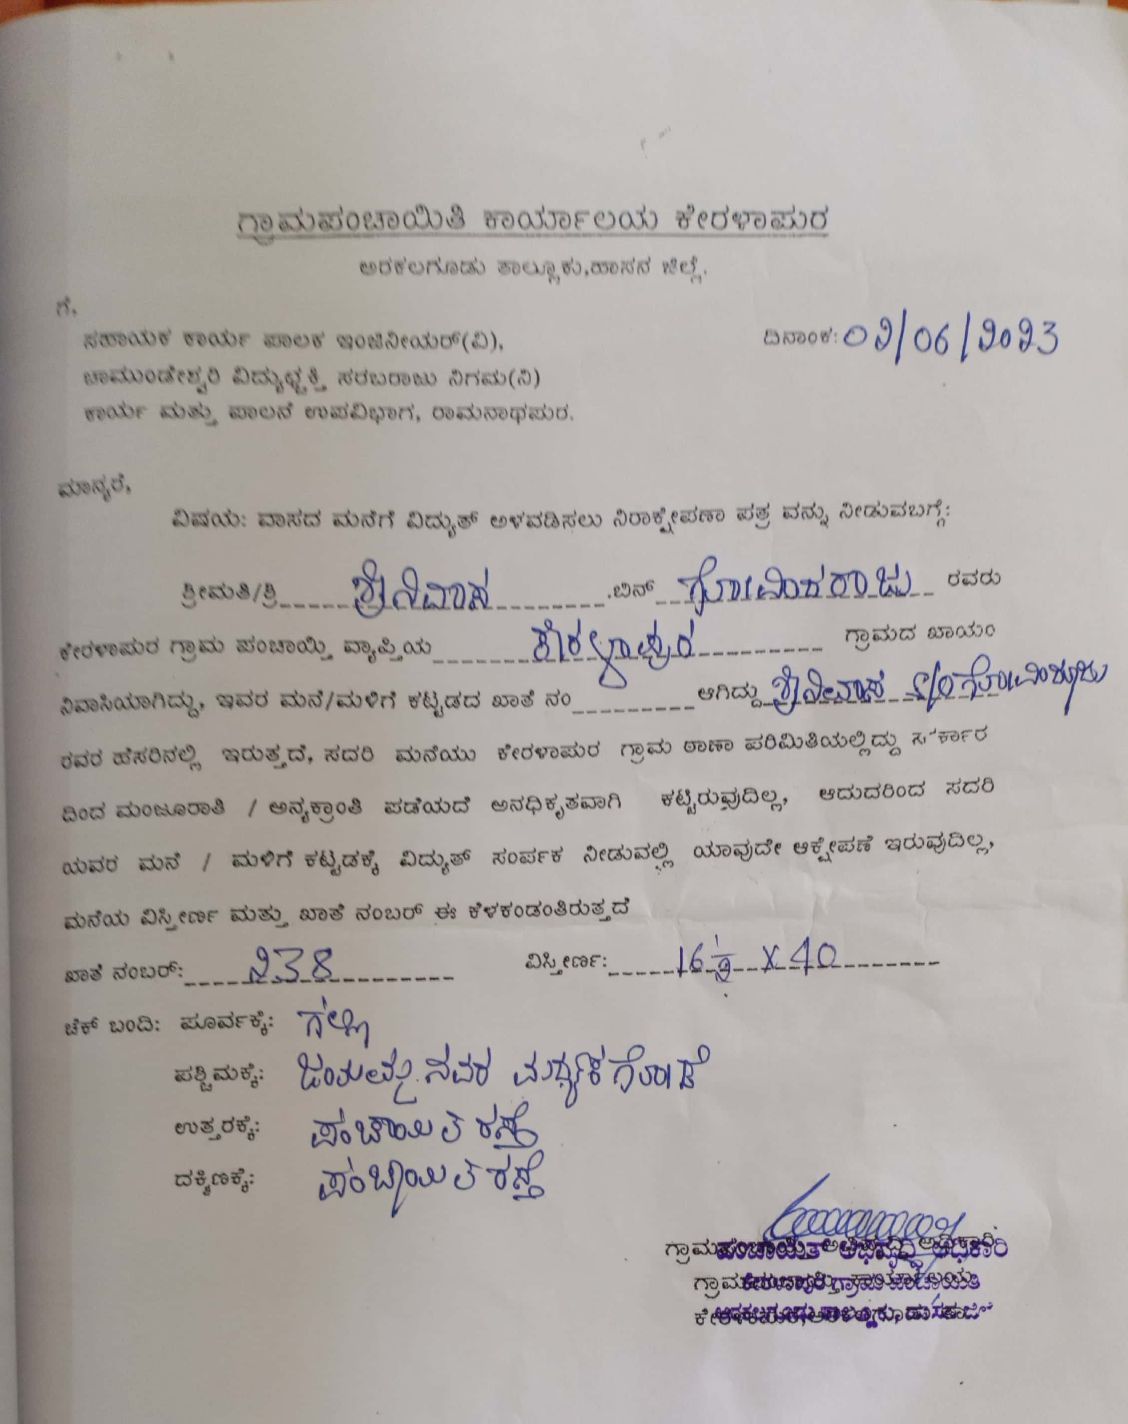 ಗ್ರಾಮಪಂಚಾಯಿತಿ ಕಾರ್ಯಾಲಯ ಕೇರಳಾಪುರ
ಅರಕಲಗೂಡು ತಾಲ್ಲೂಕು,ಹಾಸನ ಜಿಲ್ಲೆ.
ಗೆ,
ಸಹಾಯಕ ಕಾರ್ಯ ಪಾಲಕ ಇಂಜಿನೀಯರ್(ವಿ),
ದಿನಾಂಕ: 02/06/2023
ಚಾಮುಂಡೇಶ್ವರಿ ವಿದ್ಯುಚ್ಛಕ್ತಿ ಸರಬರಾಜು ನಿಗಮ(ನಿ)
ಕಾರ್ಯ ಮತ್ತು ಪಾಲನೆ ಉಪವಿಭಾಗ, ರಾಮನಾಥಪುರ.
ಮಾನ್ಯರೆ,
ವಿಷಯ: ವಾಸದ ಮನೆಗೆ ವಿದ್ಯುತ್ ಅಳವಡಿಸಲು ನಿರಾಕ್ಷೇಪಣಾ ಪತ್ರ ವನ್ನು ನೀಡುವಬಗ್ಗೆ:
ಶ್ರೀಮತಿ/ಶ್ರಿ ಶ್ರೀನಿವಾಸ .ಬಿನ್ ಗೋವಿಂದರಾಜು ರವರು
ಕೇರಳಾಪುರ ಗ್ರಾಮ ಪಂಚಾಯ್ತಿ ವ್ಯಾಪ್ತಿಯ ಕೇರಳಾಪುರ ಗ್ರಾಮದ ಖಾಯಂ
ನಿವಾಸಿಯಾಗಿದ್ದು, ಇವರ ಮನೆ/ಮಳಿಗೆ ಕಟ್ಟಡದ ಖಾತೆ ನಂ ಆಗಿದ್ದು ಶ್ರೀನೀವಾಸ S/O ಗೋವಿಂದರಾಜು
ರವರ ಹೆಸರಿನಲ್ಲಿ ಇರುತ್ತದೆ, ಸದರಿ ಮನೆಯು ಕೇರಳಾಪುರ ಗ್ರಾಮ ಠಾಣಾ ಪರಿಮಿತಿಯಲ್ಲಿದ್ದು ಸರ್ಕಾರ
ದಿಂದ ಮಂಜೂರಾತಿ / ಅನ್ಯಕ್ರಾಂತಿ ಪಡೆಯದೆ ಅನಧಿಕೃತವಾಗಿ ಕಟ್ಟಿರುವುದಿಲ್ಲ, ಆದುದರಿಂದ ಸದರಿ
ಯವರ ಮನೆ / ಮಳಿಗೆ ಕಟ್ಟಡಕ್ಕೆ ವಿದ್ಯುತ್ ಸಂರ್ಪಕ ನೀಡುವಲ್ಲಿ ಯಾವುದೇ ಆಕ್ಷೇಪಣೆ ಇರುವುದಿಲ್ಲ,
ಮನೆಯ ವಿಸ್ತೀರ್ಣ ಮತ್ತು ಖಾತೆ ನಂಬರ್ ಈ ಕೆಳಕಂಡಂತಿರುತ್ತದೆ
ಖಾತೆ ನಂಬರ್: 238 ವಿಸ್ತೀರ್ಣ: 16½ X 40
ಚೆಕ್ ಬಂದಿ: ಪೂರ್ವಕ್ಕೆ: ಗಲ್ಲಿ
ಪಶ್ಚಿಮಕ್ಕೆ: ನವರ ಗೋಡೆ
ಉತ್ತರಕ್ಕೆ: ಪಂಚಾಯಿತಿ ರಸ್ತೆ
ದಕ್ಷಿಣಕ್ಕೆ: ಪಂಚಾಯಿತಿ ರಸ್ತೆ
ಗ್ರಾಮ ಪಂಚಾಯಿತ್ ಅಭಿವೃದ್ಧಿ ಅಧಿಕಾರಿ